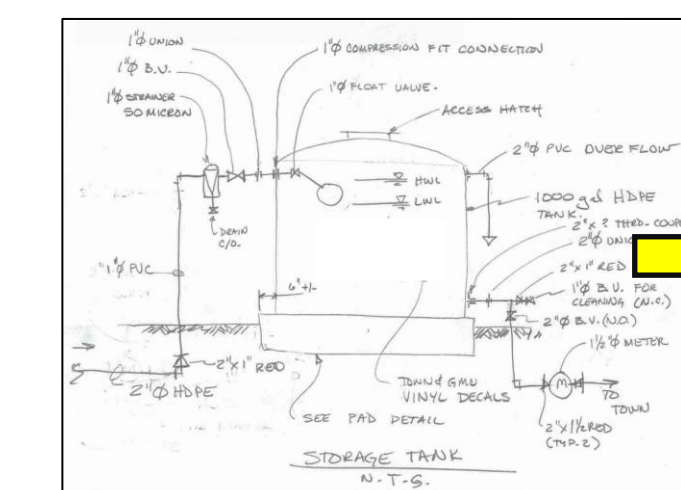 1"Ø UNION
1"Ø B.V.
1"Ø STRAINER
50 MICRON
1"Ø COMPRESSION FIT CONNECTION
1"Ø FLOAT VALVE.
ACCESS HATCH
2"Ø PVC OVERFLOW
HWL
LWL
1000 gal HDPE
TANK.
2"x ? THRD. COUP
2"Ø UNI
DRAIN
C/O.
1"Ø PVC
6" +/-
2"x1" RED
1"Ø B.V. FOR
CLEANING (N.C.)
2"Ø B.V. (N.O.)
1½"Ø METER
M
TO
TOWN
2"x1" RED
2"Ø HDPE
TOWN & GMU
VINYL DECALS
SEE PAD DETAIL
2"x1½ RED
(TYP-2)
STORAGE TANK
N.T.S.